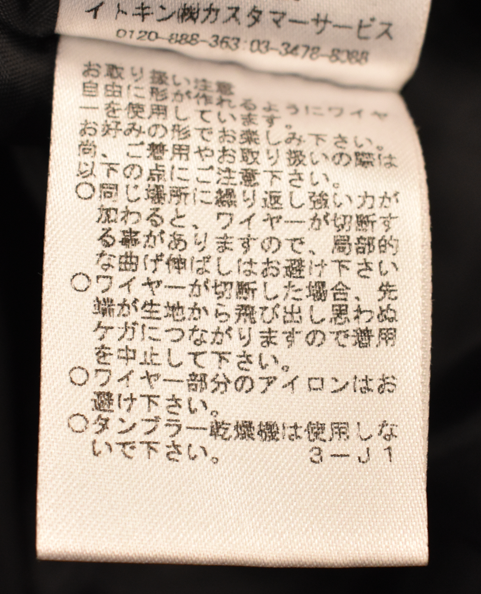 イトキン㈱カスタマーサービス
0120-888-363:03-3478-8088
お取り扱い注意
自由に形が作れるようにワイヤ
ーを使用しています。
お好みの形でお楽しみ下さい。
尚、ご着用やお取り扱いの際は
以下の点にご注意下さい。
○同じ場所に繰り返し強い力が
加わると、ワイヤーが切断す
る事がありますので、局部的
な曲げ伸ばしはお避け下さい
○ワイヤーが切断した場合、先
端が生地から飛び出し思わぬ
ケガにつながりますので着用
を中止して下さい。
○ワイヤー部分のアイロンはお
避け下さい。
○タンブラー乾燥機は使用しな
いで下さい。 3-J1